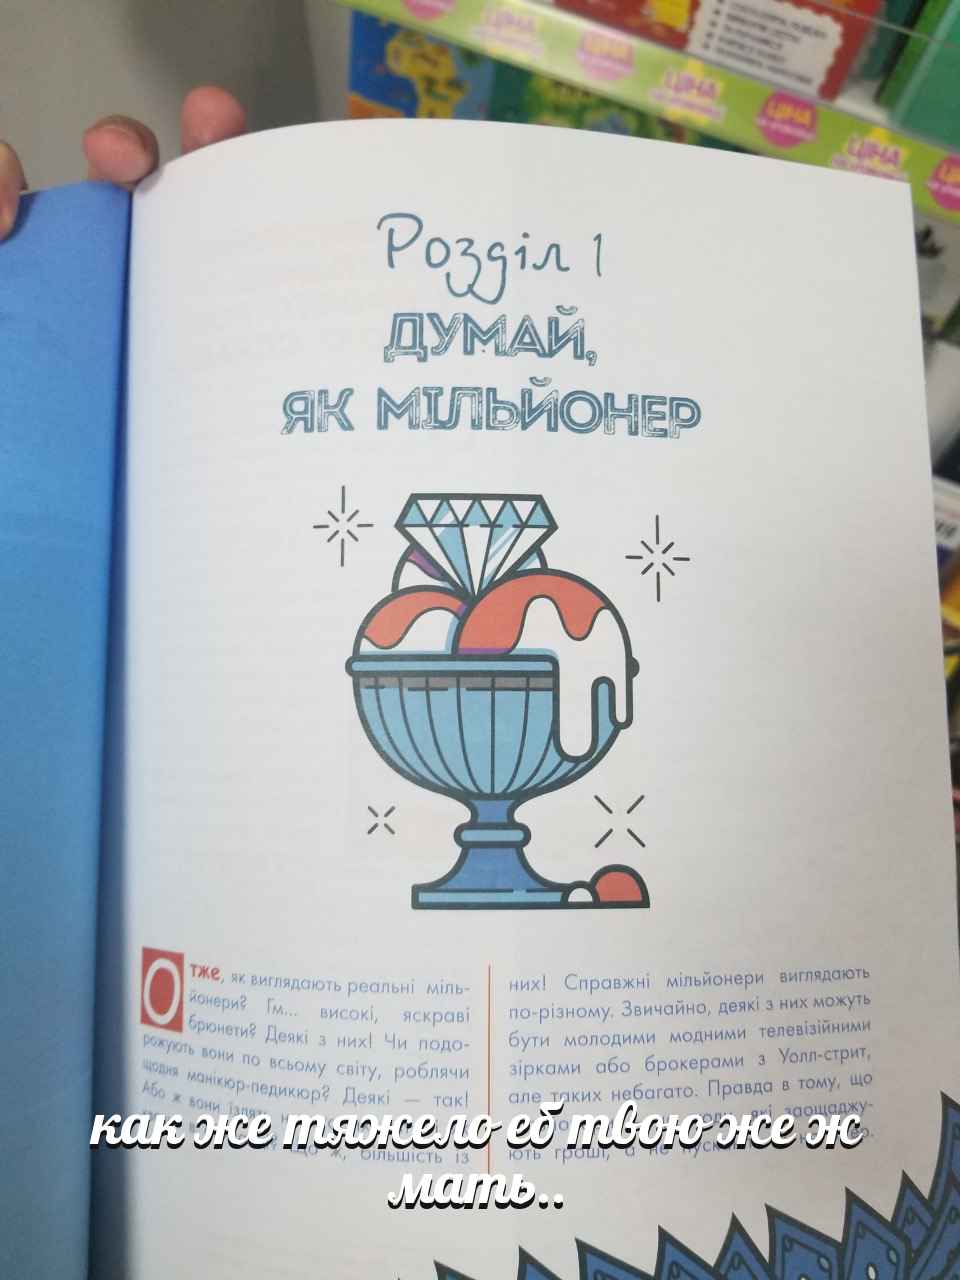 ЦІНА
ЦІНА
ЦІНА
ЦІНА
ЦІНА
Розділ 1
ДУМАЙ,
ЯК МІЛЬЙОНЕР
Отже, як виглядають реальні міль-
йонери? Гм... високі, яскраві
брюнети? Деякі з них! Чи подо-
рожують вони по всьому світу, роблячи
щодня манікюр-педикюр? Деякі — так!
Або ж вони їздять
ж, більшість із
них! Справжні мільйонери виглядають
по-різному. Звичайно, деякі з них можуть
бути молодими модними телевізійними
зірками або брокерами з Уолл-стрит,
але таких небагато. Правда в тому, що
які заощаджу-
ють гроші, а не
как же тяжело еб твою же ж
мать..